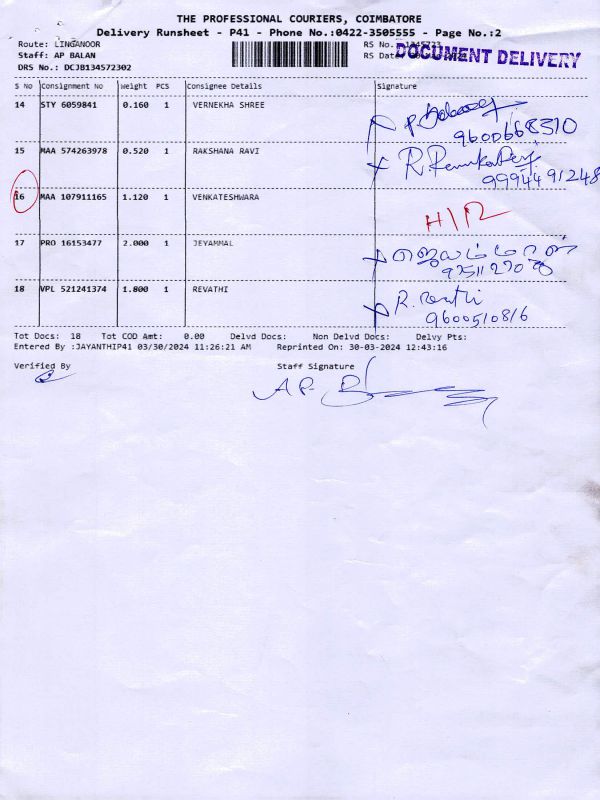 THE PROFESSIONAL COURIERS, COIMBATORE
Delivery Runsheet - P41 - Phone No.:0422-3505555 - Page No.:2
Route: LINGANOOR RS No.
Staff: AP BALAN RS Date:
DOCUMENT DELIVERY
DRS No.: DCJB134572302
S No Consignment No Weight PCS Consignee Details Signature
14 STY 6059841 0.160 1 VERNEKHA SHREE
9600668310
15 MAA 574263978 0.520 1 RAKSHANA RAVI
9994491248
16 MAA 107911165 1.120 1 VENKATESHWARA
17 PRO 16153477 2.000 1 JEYAMMAL
18 VPL 521241374 1.800 1 REVATHI
9600510816
Tot Docs: 18 Tot COD Amt: 0.00 Delvd Docs: Non Delvd Docs: Delvy Pts:
Entered By :JAYANTHIP41 03/30/2024 11:26:21 AM Reprinted On: 30-03-2024 12:43:16
Verified By Staff Signature